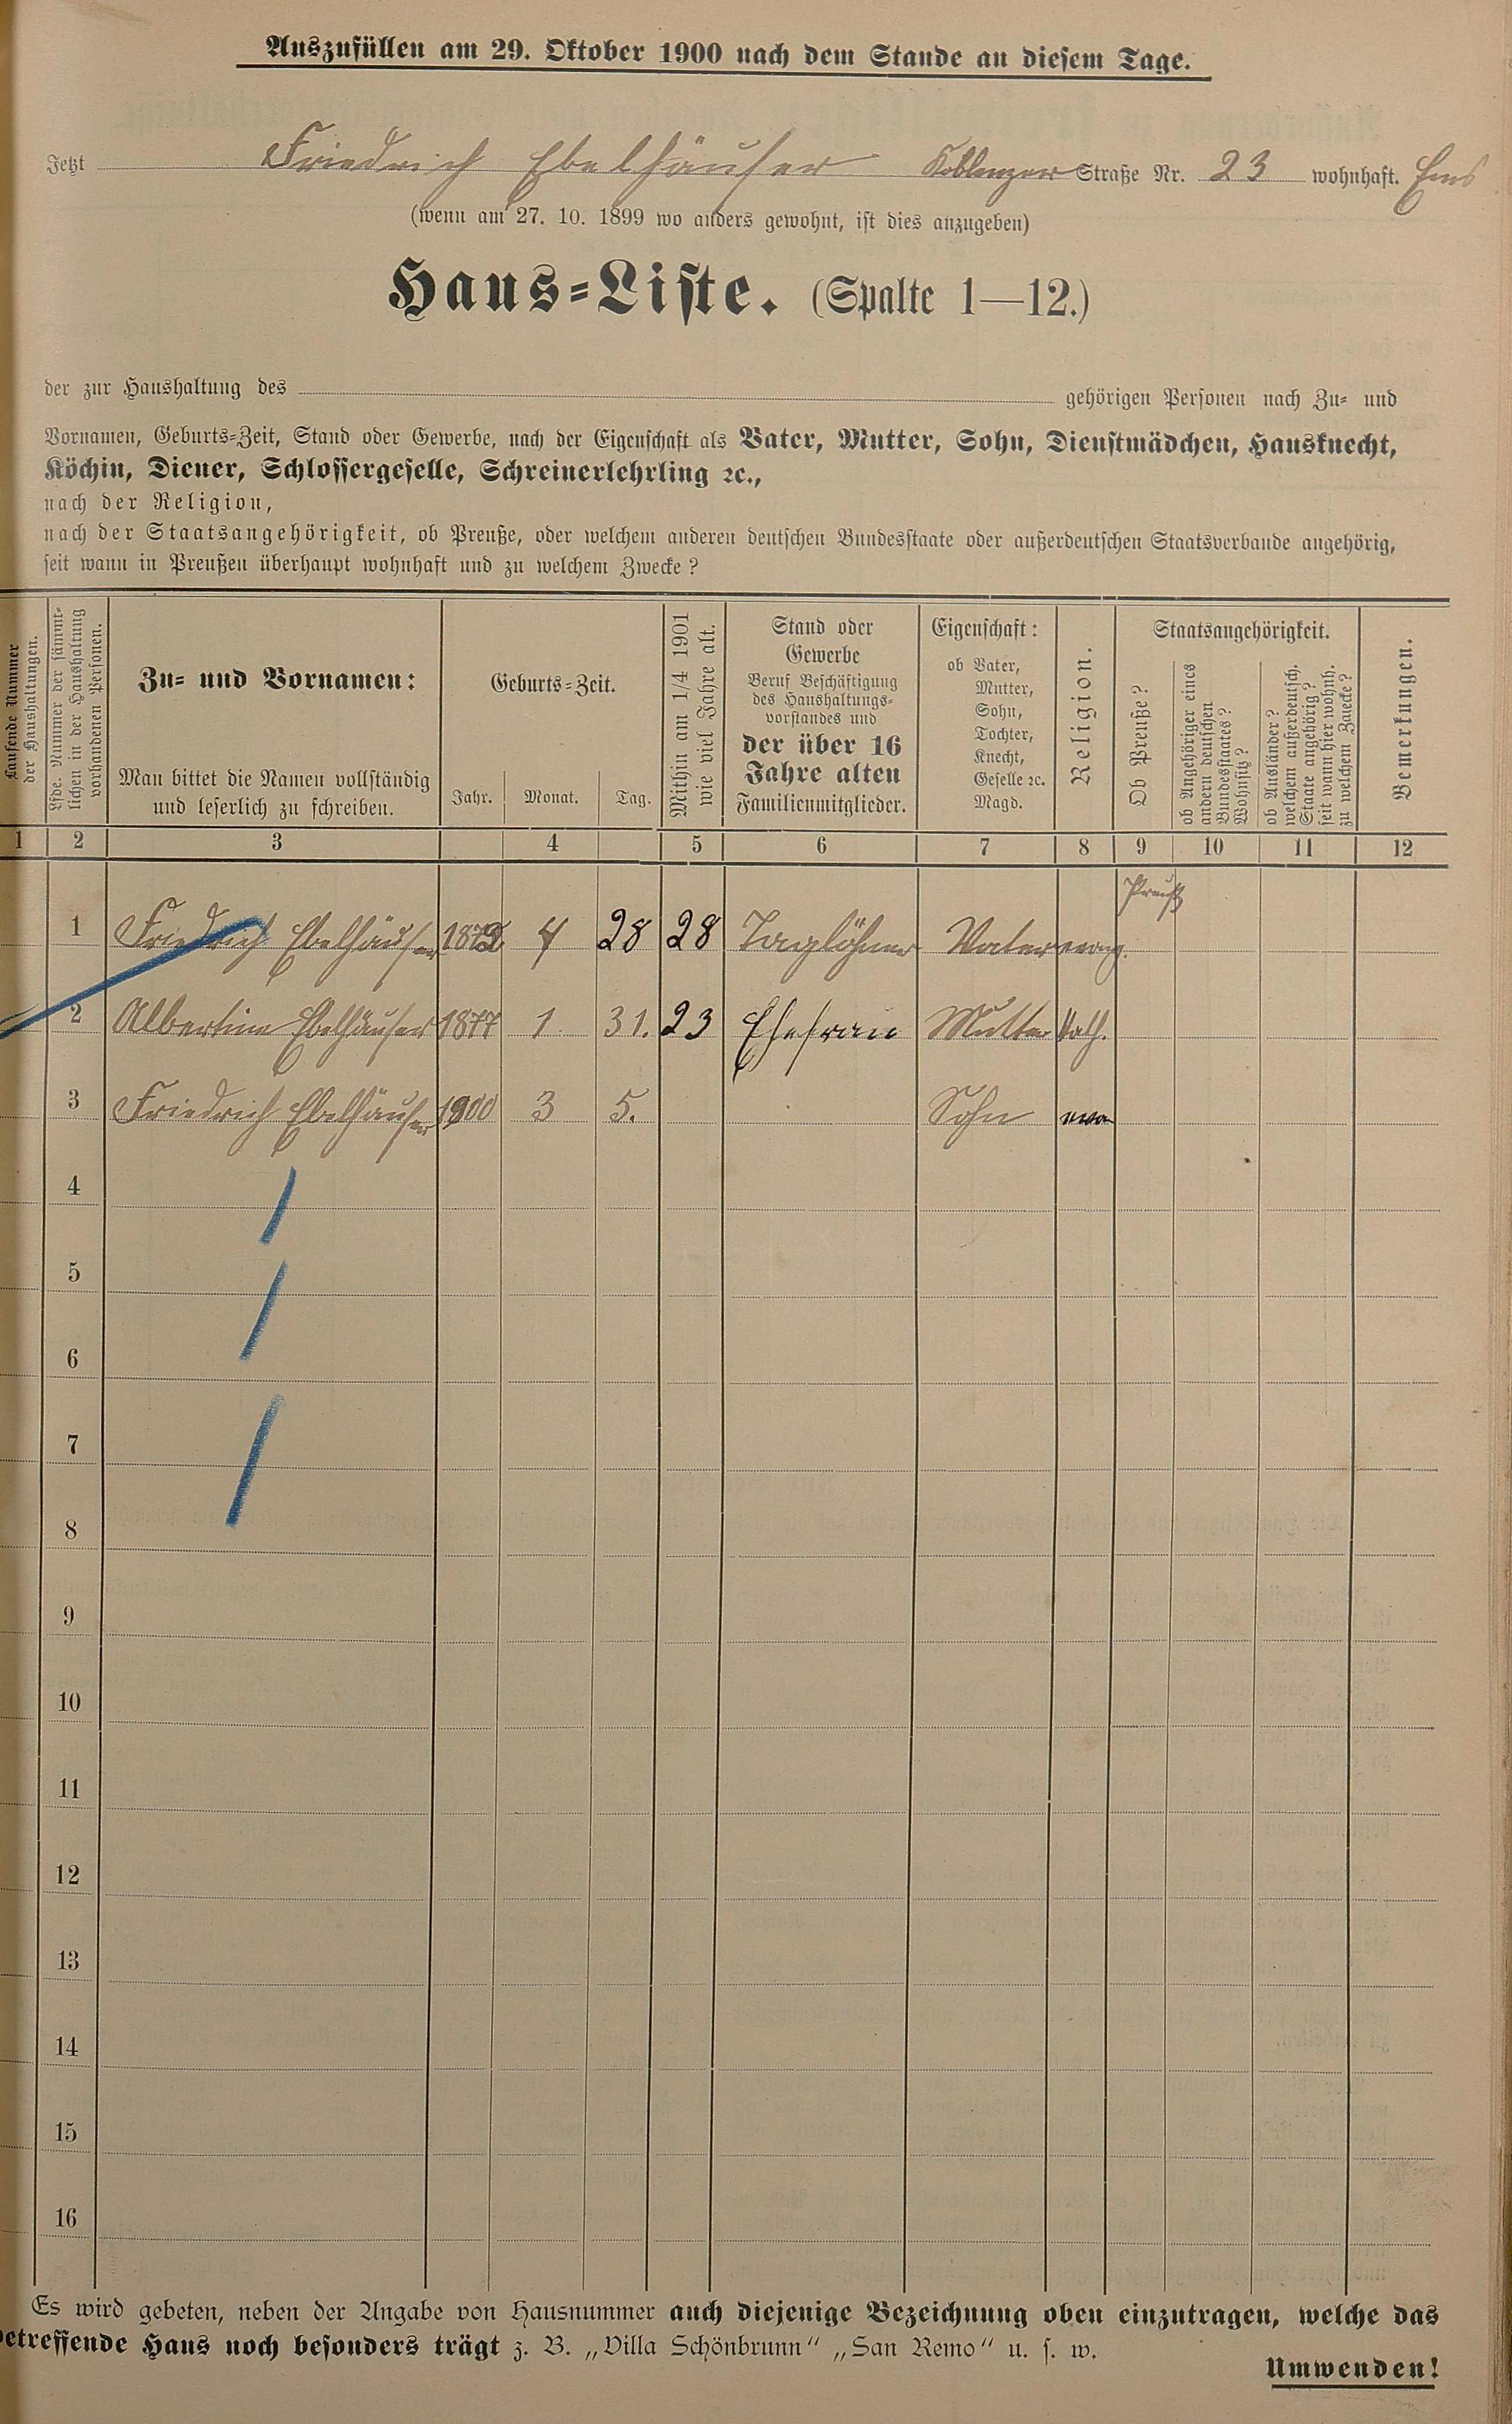 Auszufüllen am 29. Oktober 1900 nach dem Stande an diesem Tage.
Jetzt Friedrich Ebelhäuser Koblenzer Straße Nr. 23 wohnhaft. Ems
(wenn am 27. 10. 1899 wo anders gewohnt, ist dies anzugeben)
Haus-Liste. (Spalte 1—12.)
der zur Haushaltung des gehörigen Personen nach Zu- und
Vornamen, Geburts-Zeit, Stand oder Gewerbe, nach der Eigenschaft als Vater, Mutter, Sohn, Dienstmädchen, Hausknecht,
Köchin, Diener, Schlossergeselle, Schreinerlehrling ꝛc.,
nach der Religion,
nach der Staatsangehörigkeit, ob Preuße, oder welchem anderen deutschen Bundesstaate oder außerdeutschen Staatsverbande angehörig,
seit wann in Preußen überhaupt wohnhaft und zu welchem Zwecke?
Laufende Nummer
der Haushaltungen.
Lfde. Nummer der sämmt-
lichen in der Haushaltung
vorhandenen Personen.
Zu- und Vornamen:
Man bittet die Namen vollständig
und leserlich zu schreiben.
Geburts-Zeit.
Jahr. Monat. Tag.
Mithin am 1/4 1901
wie viel Jahre alt.
Stand oder
Gewerbe
Beruf Beschäftigung
des Haushaltungs-
vorstandes und
der über 16
Jahre alten
Familienmitglieder.
Eigenschaft:
ob Vater,
Mutter,
Sohn,
Tochter,
Knecht,
Geselle ꝛc.
Magd.
Religion.
Staatsangehörigkeit.
Ob Preuße?
ob Angehöriger eines
andern deutschen
Bundesstaates?
Wohnsitz?
ob Ausländer?
welchem außerdeutsch.
Staate angehörig?
seit wann hier wohnh.
zu welchem Zwecke?
Bemerkungen.
1 2 3 4 5 6 7 8 9 10 11 12
Preuß
1 Friedrich Ebelhäuser 1872 4 28 28 Taglöhner Vater evang.
2 Albertine Ebelhäuser 1877 1 31. 23 Ehefrau Mutter Kath.
3 Friedrich Ebelhäuser 1900 3 5. Sohn eva
4
5
6
7
8
9
10
11
12
13
14
15
16
Es wird gebeten, neben der Angabe von Hausnummer auch diejenige Bezeichnung oben einzutragen, welche das
betreffende Haus noch besonders trägt z. B. „Villa Schönbrunn“ „San Remo“ u. s. w.
Umwenden!